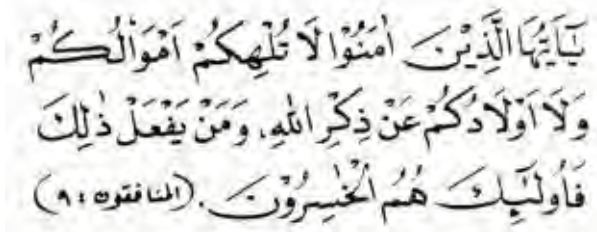 يٰٓاَيُّهَا الَّذِيْنَ اٰمَنُوْا لَا تُلْهِكُمْ اَمْوَالُكُمْ
وَلَا اَوْلَادُكُمْ عَنْ ذِكْرِ اللهِ، وَمَنْ يَفْعَلْ ذٰلِكَ
فَأُولٰٓئِكَ هُمُ الْخٰسِرُوْنَ. (المنافقون : ٩)